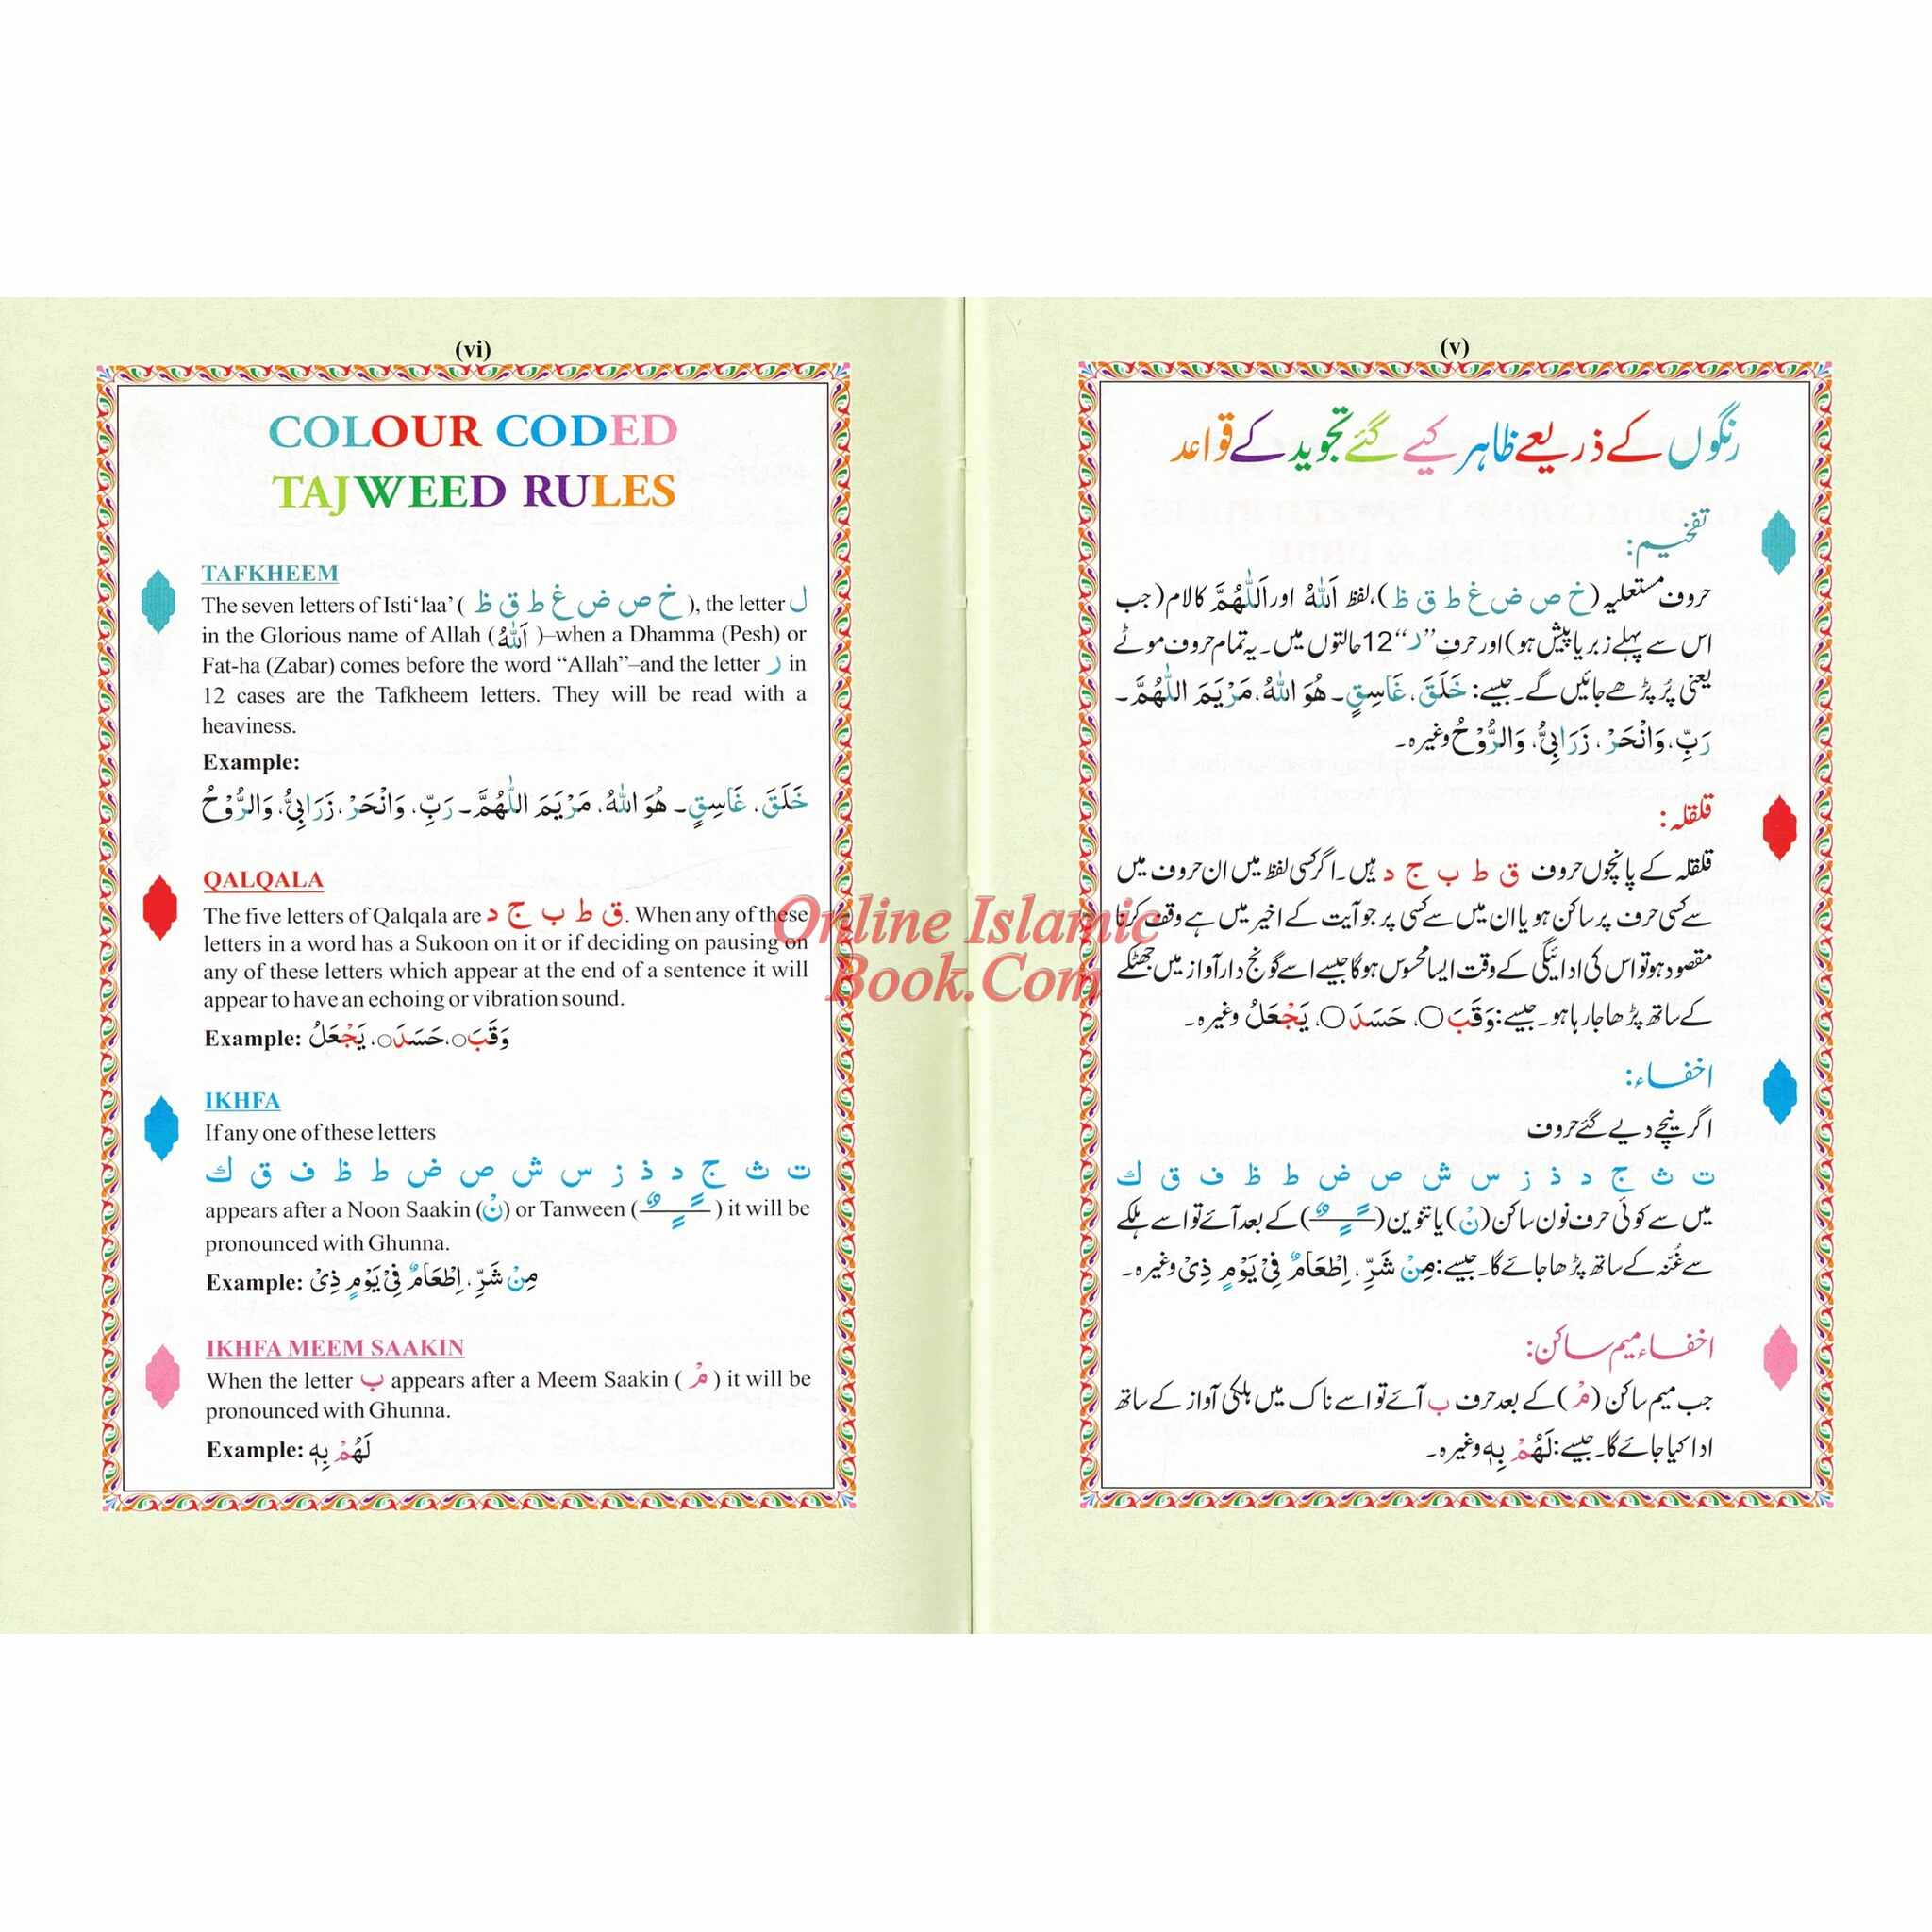 (vi)
COLOUR CODED
TAJWEED RULES
TAFKHEEM
The seven letters of Isti‘laa’ ( خ ص ض غ ط ق ظ ), the letter ل
in the Glorious name of Allah ( اَللّٰهُ )–when a Dhamma (Pesh) or
Fat-ha (Zabar) comes before the word “Allah”–and the letter ر in
12 cases are the Tafkheem letters. They will be read with a
heaviness.
Example:
خَلَقَ، غَاسِقٍ۔ هُوَ اللّٰهُ، مَرْيَمَ اللّٰهُمَّ۔ رَبِّ، وَانْحَرْ، زَرَابِیُّ، وَالرُّوْحُ
QALQALA
The five letters of Qalqala are ق ط ب ج د. When any of these
letters in a word has a Sukoon on it or if deciding on pausing on
any of these letters which appear at the end of a sentence it will
appear to have an echoing or vibration sound.
Example: وَقَبَ○، حَسَدَ○، يَجْعَلُ
IKHFA
If any one of these letters
ت ث ج د ذ ز س ش ص ض ط ظ ف ق ك
appears after a Noon Saakin (نْ) or Tanween ( ـًـٍـٌ ) it will be
pronounced with Ghunna.
Example: مِنْ شَرِّ، اِطْعَامٌ فِیْ يَوْمٍ ذِیْ
IKHFA MEEM SAAKIN
When the letter ب appears after a Meem Saakin ( مْ ) it will be
pronounced with Ghunna.
Example: لَهُمْ بِهٖ
(v)
رنگوں کے ذریعے ظاہر کیے گئے تجوید کے قواعد
تفخیم:
حروف مستعلیہ (خ ص ض غ ط ق ظ)، لفظ اَللّٰهُ اور اَللّٰهُمَّ کا لام (جب
اس سے پہلے زبر یا پیش ہو) اور حرفِ ”ر“ 12 حالتوں میں۔ یہ تمام حروف موٹے
یعنی پُر پڑھے جائیں گے۔ جیسے: خَلَقَ، غَاسِقٍ۔ هُوَ اللّٰهُ، مَرْيَمَ اللّٰهُمَّ۔
رَبِّ، وَانْحَرْ، زَرَابِیُّ، وَالرُّوْحُ وغیرہ۔
قلقلہ:
قلقلہ کے پانچوں حروف ق ط ب ج د ہیں۔ اگر کسی لفظ میں ان حروف میں
سے کسی حرف پر ساکن ہو یا ان میں سے کسی پر جو آیت کے اخیر میں ہے وقف کرنا
مقصود ہو تو اس کی ادائیگی کے وقت ایسا محسوس ہوگا جیسے اسے گونج دار آواز میں جھٹکے
کے ساتھ پڑھا جا رہا ہو۔ جیسے: وَقَبَ○، حَسَدَ○، يَجْعَلُ وغیرہ۔
اخفاء:
اگر نیچے دیے گئے حروف
ت ث ج د ذ ز س ش ص ض ط ظ ف ق ك
میں سے کوئی حرف نون ساکن (نْ) یا تنوین (ـًـٍـٌ) کے بعد آئے تو اسے ہلکے
سے غُنّہ کے ساتھ پڑھا جائے گا۔ جیسے: مِنْ شَرِّ، اِطْعَامٌ فِیْ يَوْمٍ ذِیْ وغیرہ۔
اخفاء میم ساکن:
جب میم ساکن (مْ) کے بعد حرف ب آئے تو اسے ناک میں ہلکی آواز کے ساتھ
ادا کیا جائے گا۔ جیسے: لَهُمْ بِهٖ وغیرہ۔
Online Islamic
Book.Com